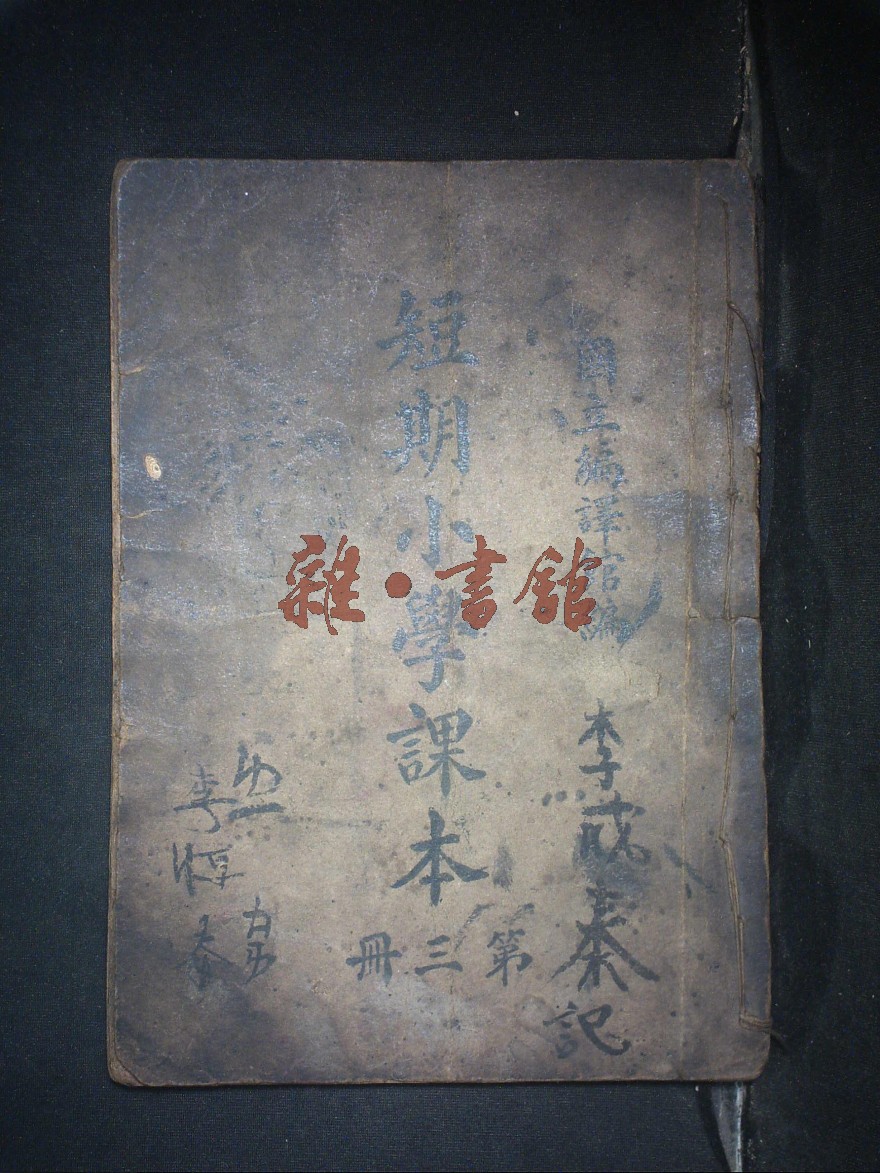 國立編譯館編
李成泰記
短期小學課本
第三冊
雜·書館
李